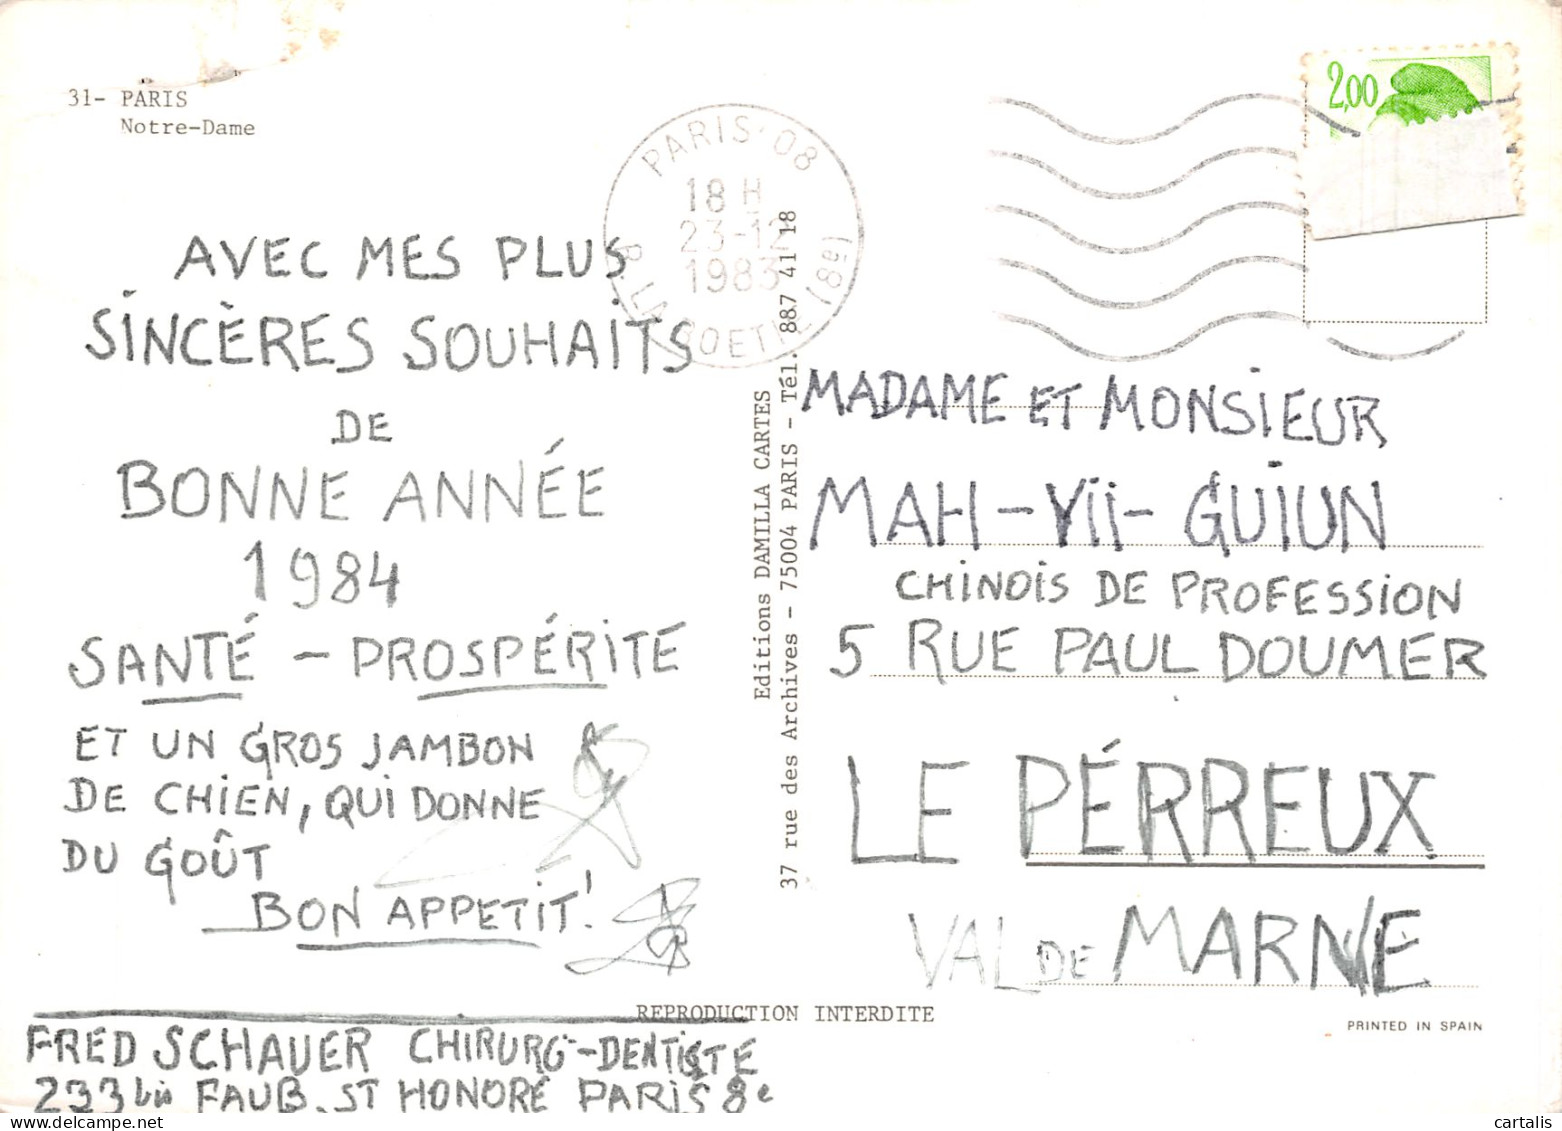 31- PARIS
Notre-Dame
PARIS 08
18 H
23-12
1983
R. LA BOETIE (8e)
2,00
AVEC MES PLUS
SINCÈRES SOUHAITS
DE
BONNE ANNÉE
1984
SANTÉ - PROSPÉRITE
ET UN GROS JAMBON
DE CHIEN, QUI DONNE
DU GOÛT
BON APPETIT!
FRED SCHAUER CHIRURG-DENTISTE
233 bis FAUB. ST HONORÉ PARIS 8e
Editions DAMILLA CARTES
37 rue des Archives - 75004 PARIS - Tél. 887 41 18
MADAME ET MONSIEUR
MAH-YII-GUIUN
CHINOIS DE PROFESSION
5 RUE PAUL DOUMER
LE PÉRREUX
VAL DE MARNE
REPRODUCTION INTERDITE
PRINTED IN SPAIN
cartalis